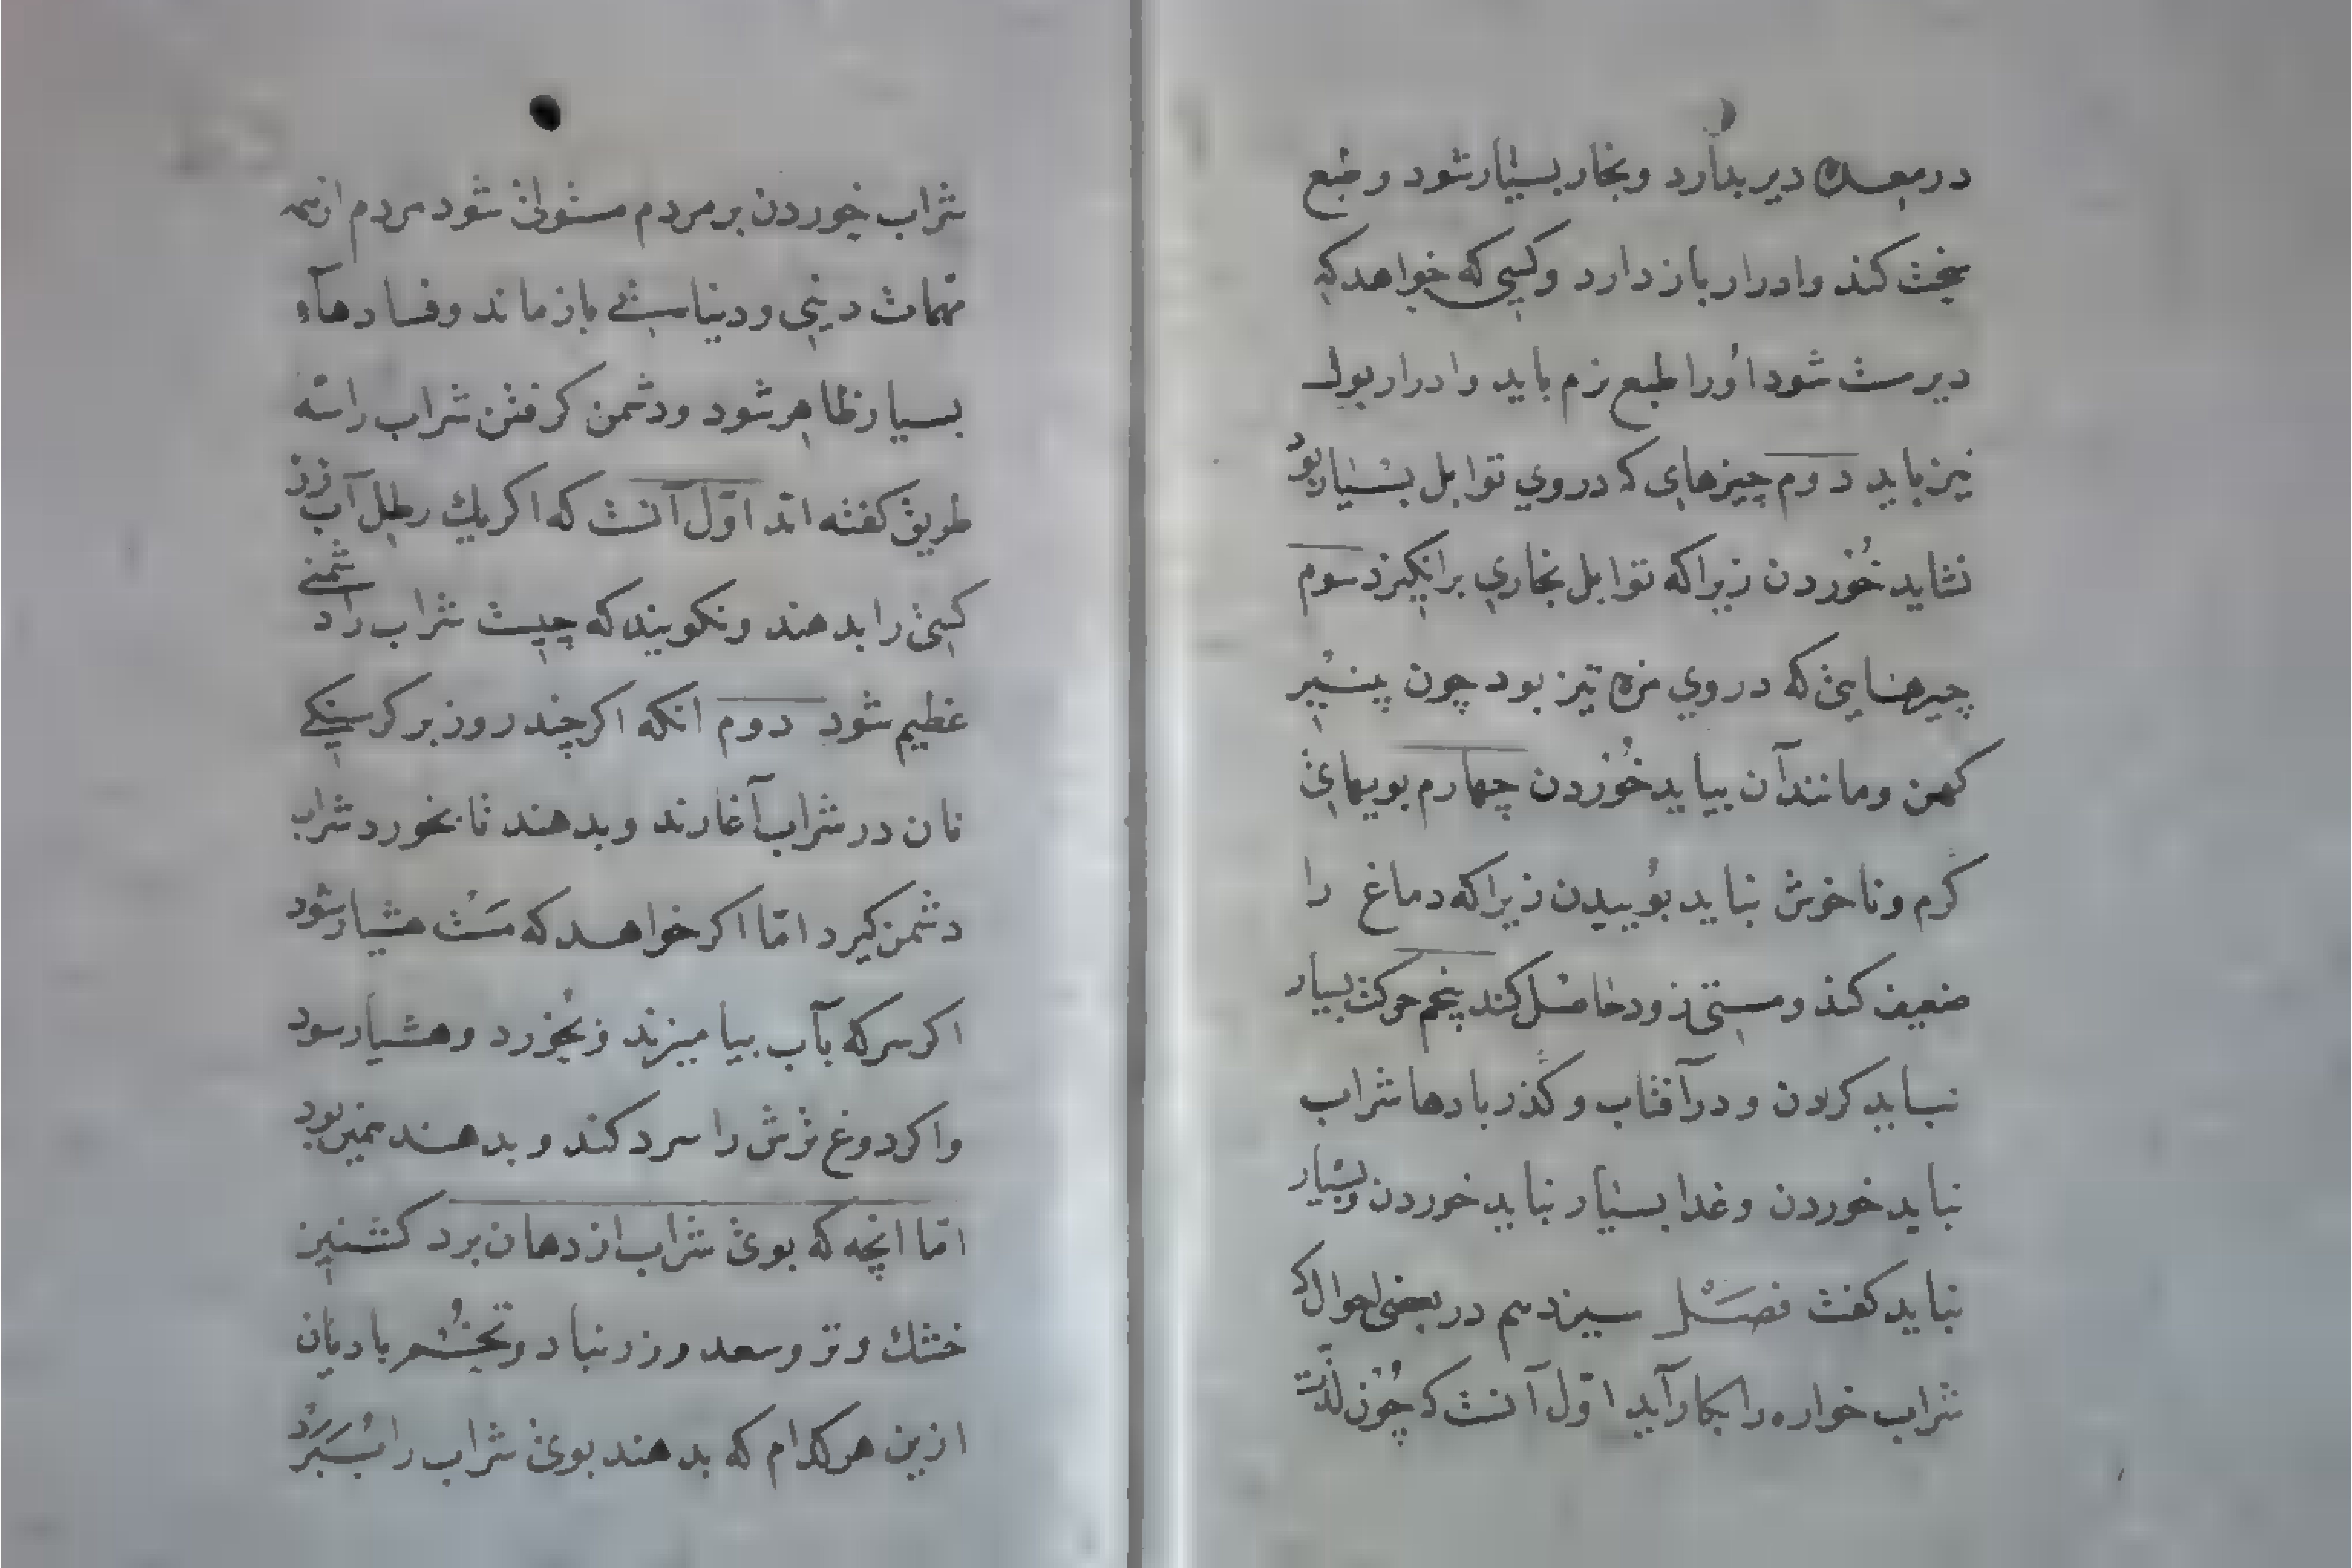 در معده دیر بدارد و بخار بسیار شود و طبع
سخت کند و ادرار باز دارد و کسی که خواهد که
دیر مست شود اورا طبع نرم باید و ادرار بول
نیز باید دوم چیزهای که در وی توابل بسیار بود
نشاید خوردن زیرا که توابل بخاری برانکیزد سوم
چیزهایی که در وی مزه تیز بود چون پنیر
کهن و مانند آن بباید خوردن چهارم بویهای
کرم و ناخوش نباید بوییدن زیرا که دماغ را
ضعیف کند و مستی زود حاصل کند پنجم حرکت بسیار
نباید کردن و در آفتاب و کذر بادها شراب
نباید خوردن و غدا بسیار نباید خوردن و بسیار
نباید کفت فصل سیزدهم در بعضی احوال که
شراب خواره را بکار آید اوّل آنست که چون لذّت
شراب خوردن بر مردم مستولی شود مردم از همه
مهمات دینی و دنیا باز ماند و فسادهاء
بسیار ظاهر شود و دشمن کرفتن شراب را سه
طریق کفته اند اوّل آنست که اکر یک رطل آب رز
کسی را بدهند و نکویند که چیست شراب را دشمنی
عظیم شود دوم انکه اکر چند روز بر کرسنکی
نان در شراب آغارند و بدهند تا بخورد شراب
دشمن کیرد امّا اکر خواهد که مست هشیار شود
اکر سرکه بآب بیامیزند و بخورد و هشیار سود
و اکر دوغ ترش را سرد کند و بدهند همین بود
امّا انچه که بوی شراب از دهان برد کشنیز
خشک و تر و سعد و زرنباد و تخم بادیان
ازین هر کدام که بدهند بوی شراب را ببرد